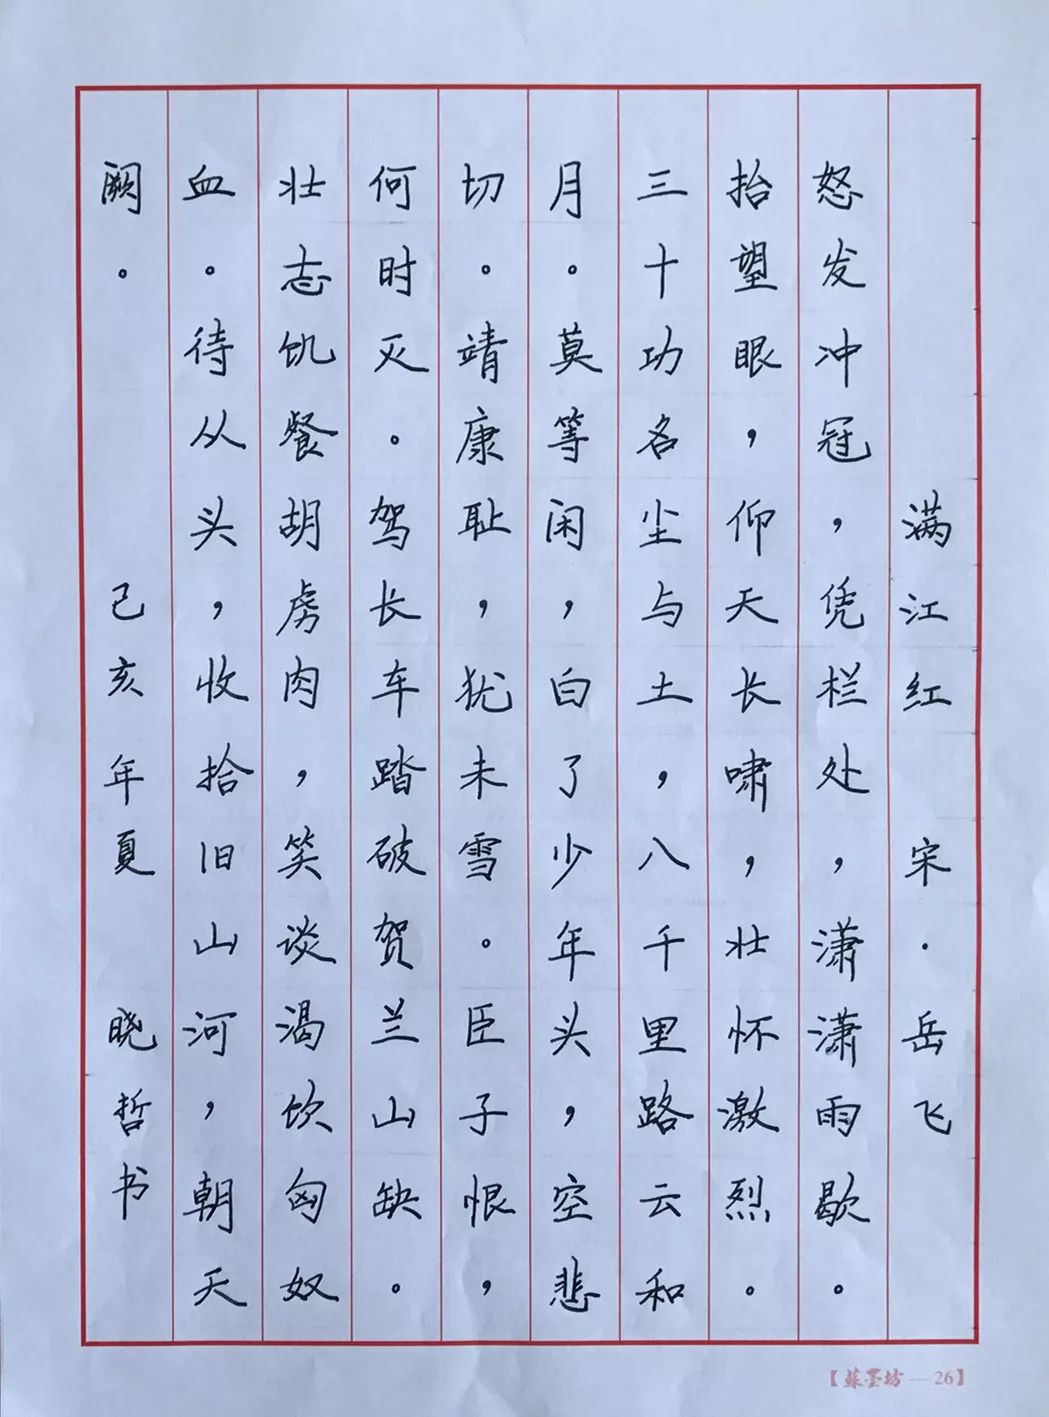 满江红 宋·岳飞
怒发冲冠，凭栏处，潇潇雨歇。
抬望眼，仰天长啸，壮怀激烈。
三十功名尘与土，八千里路云和
月。莫等闲，白了少年头，空悲
切。靖康耻，犹未雪。臣子恨，
何时灭。驾长车踏破贺兰山缺。
壮志饥餐胡虏肉，笑谈渴饮匈奴
血。待从头，收拾旧山河，朝天
阙。 己亥年夏 晓哲书
【蘇墨坊—26】